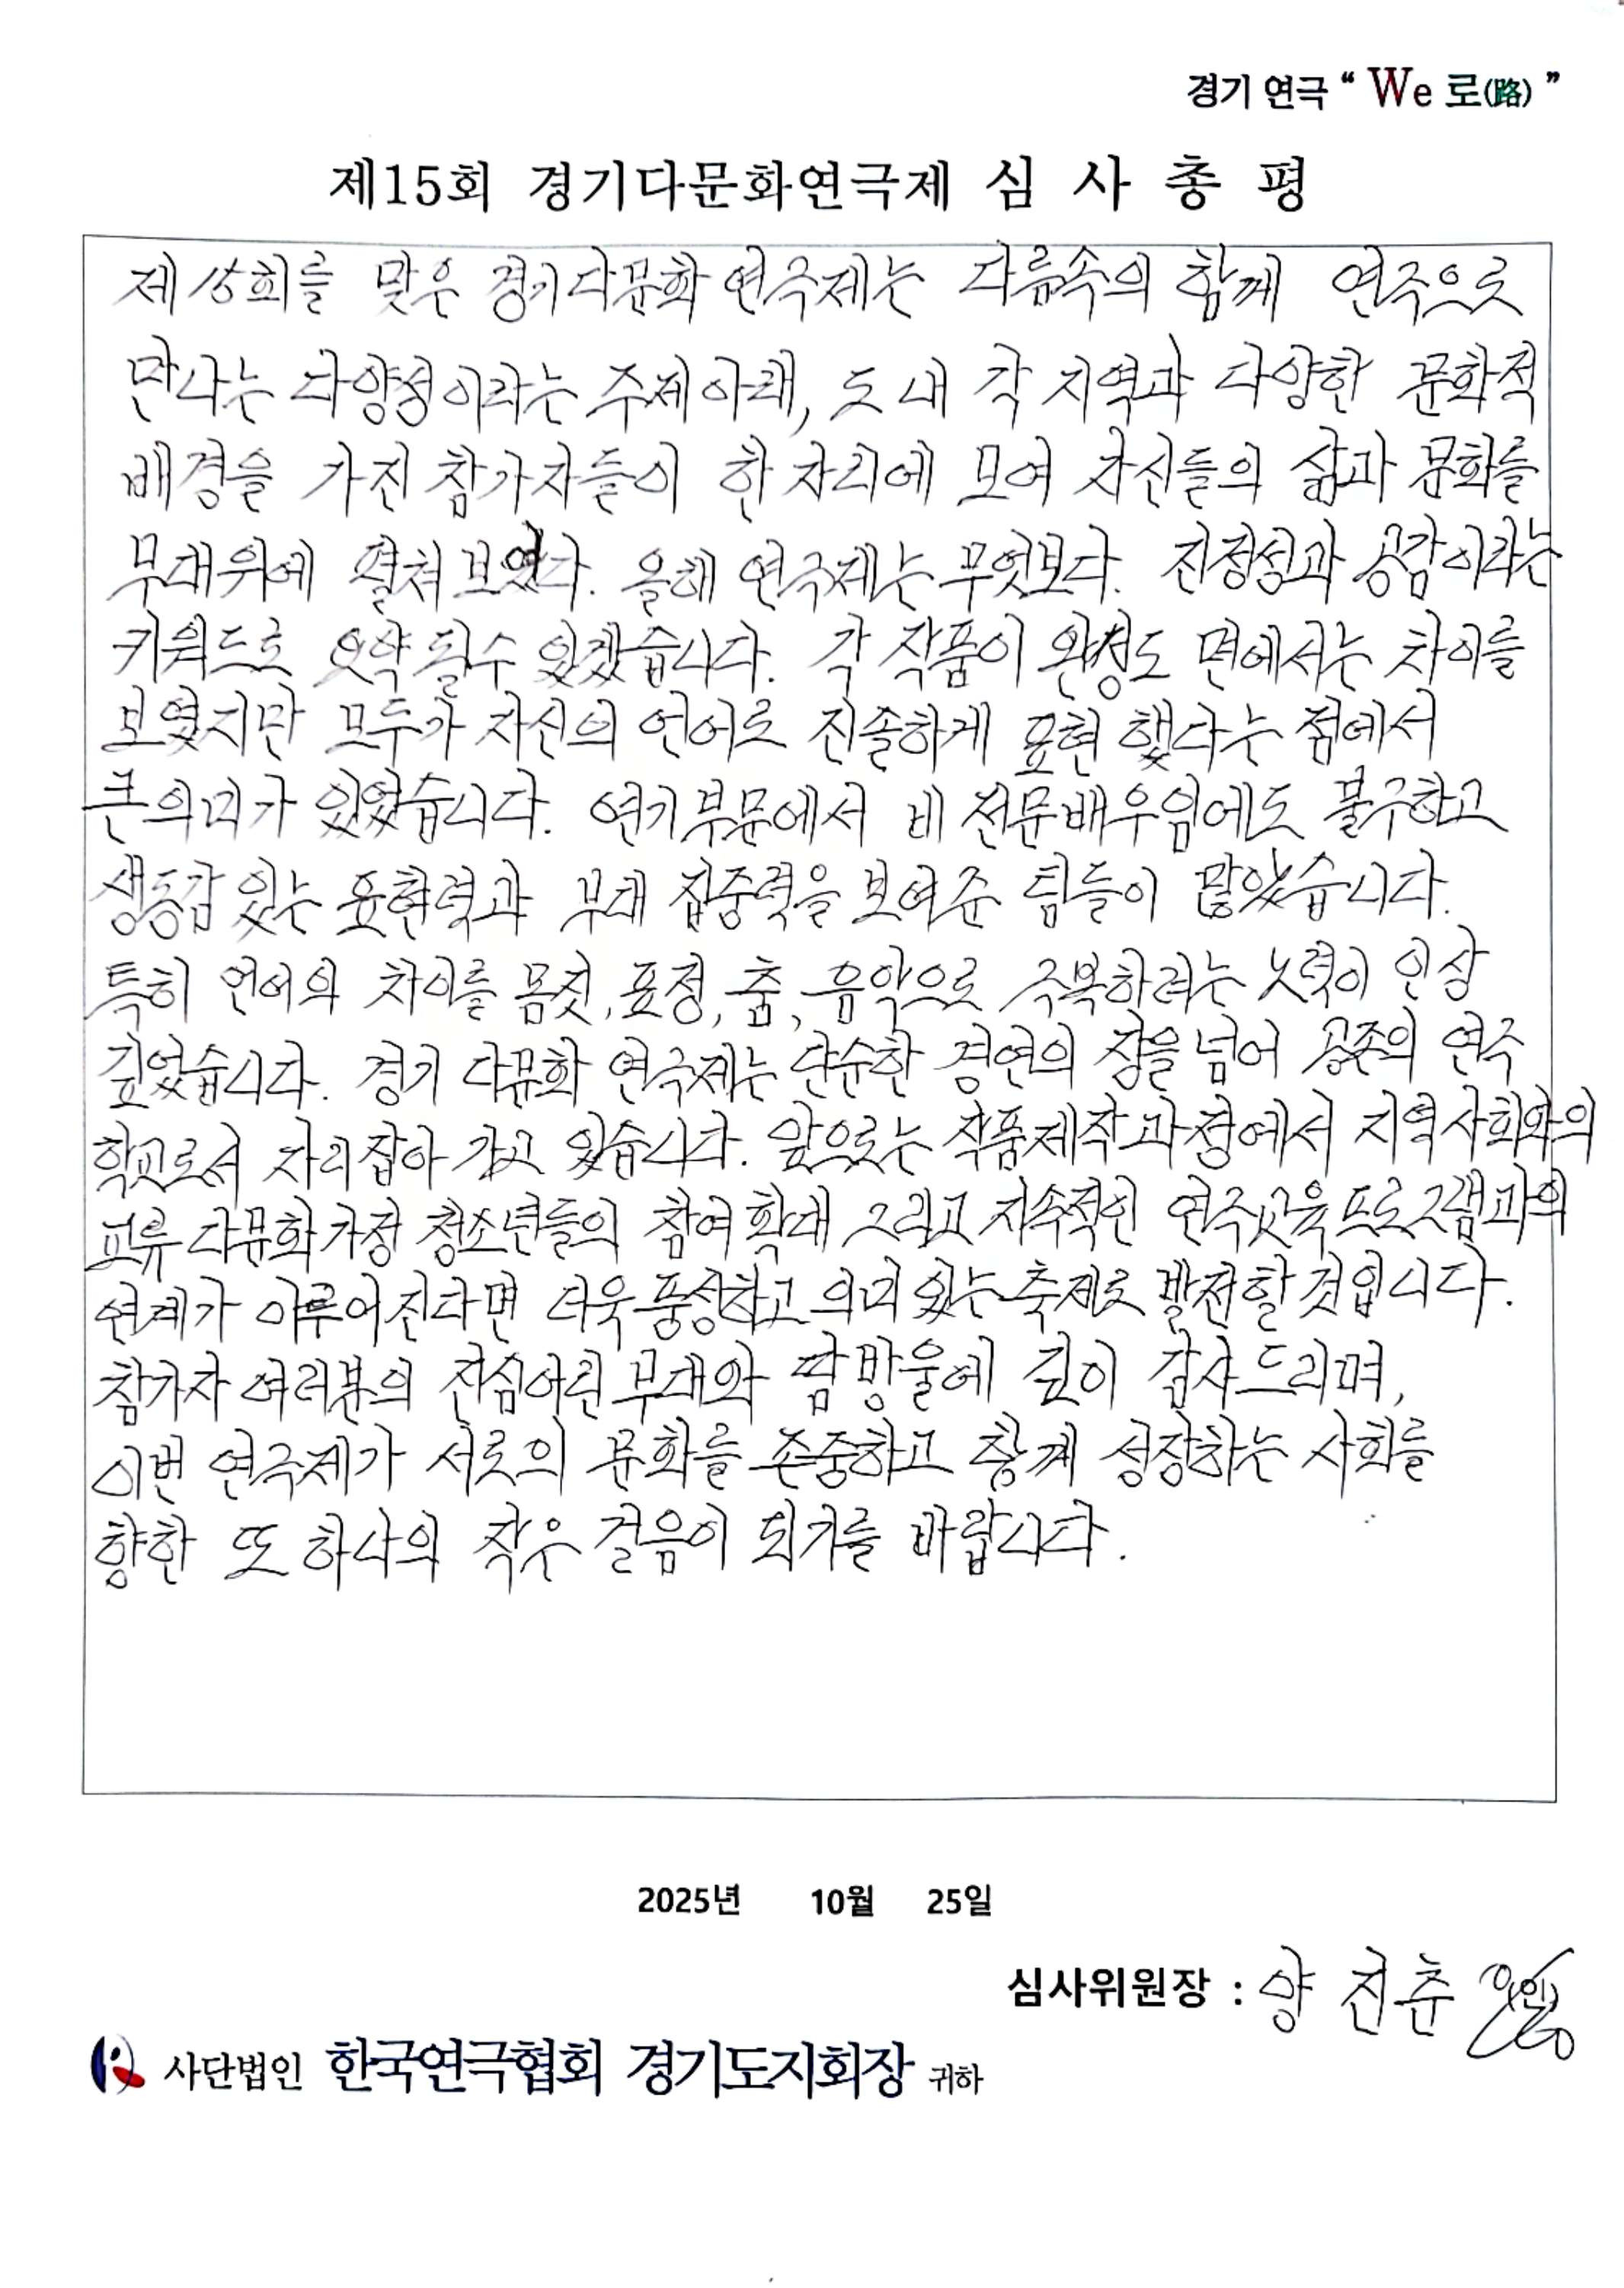 경기 연극 “ We 로(路) ”
제15회 경기다문화연극제 심 사 총 평
제 15회를 맞은 경기다문화 연극제는 다름속의 함께 연극으로
만나는 다양성이라는 주제아래, 도 내 각 지역과 다양한 문화적
배경을 가진 참가자들이 한 자리에 모여 자신들의 삶과 문화를
무대위에 펼쳐 보였다. 올해 연극제는 무엇보다. 진정성과 공감이라는
키워드로 요약 될수 있겠습니다. 각 작품이 완성도 면에서는 차이를
보였지만 모두가 자신의 언어로 진솔하게 표현 했다는 점에서
큰의미가 있었습니다. 연기부문에서 비 전문배우임에도 불구하고
생동감 있는 표현력과 무대 집중력을 보여준 팀들이 많았습니다.
특히 언어의 차이를 몸짓, 표정, 춤, 음악으로 극복하려는 노력이 인상
깊었습니다. 경기 다문화 연극제는 단순한 경연의 장을 넘어 공존의 연극
학교로서 자리잡아 가고 있습니다. 앞으로는 작품제작과정에서 지역사회와의
교류 다문화가정 청소년들의 참여확대 그리고 지속적인 연극교육프로그램과의
연계가 이루어진다면 더욱풍성하고 의미있는축제로 발전할것입니다.
참가자 여러분의 진심어린무대와 땀방울에 깊이 감사드리며,
이번 연극제가 서로의 문화를 존중하고 함께 성장하는 사회를
향한 또 하나의 작은 걸음이 되기를 바랍니다.
2025년 10월 25일
심사위원장 : 양 진춘 (인)
사단법인 한국연극협회 경기도지회장 귀하